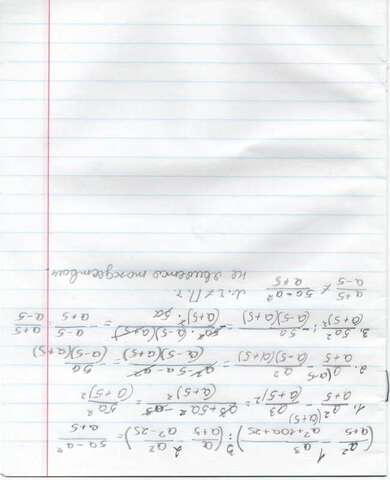 (a²/(a+5) - a³/(a²+10a+25)) : (a/(a+5) - a²/(a²-25)) = (5a-a²)/(a+5)
1. a²(a+5)/(a+5) - a³/(a+5)² = (a³+5a²-a³)/(a+5)² = 5a²/(a+5)²
2. a(a-5)/(a+5) - a²/((a-5)(a+5)) = (a²-5a-a²)/((a-5)(a+5)) = 5a/((a-5)(a+5))
3. 5a²/(a+5)² : -5a/((a-5)(a+5)) = (5a²·(a-5)(a+5))/((a+5)²·5a) = (a-5)/(a+5) (a+5)/(a-5)
(a+5)/(a-5) ≠ (5a-a²)/(a+5) л.ч ≠ п.ч
не является тождеством.